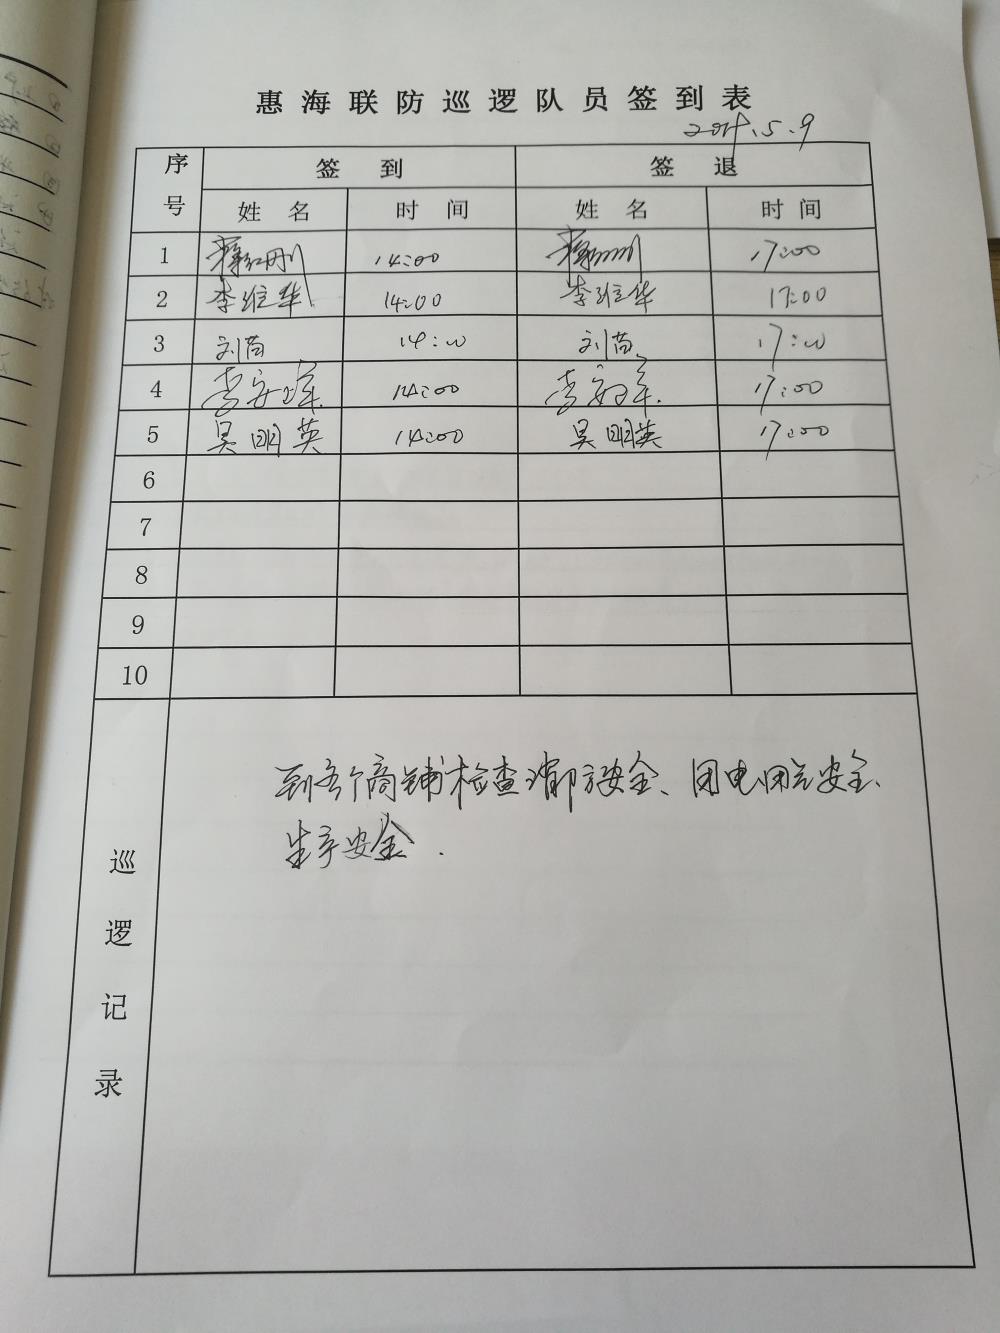 惠海联防巡逻队员签到表
2019.5.9
序号 签到 签退
姓名 时间 姓名 时间
1 14:00 17:00
2 李维华 14:00 李维华 17:00
3 刘苗 14:00 刘苗 17:00
4 14:00 17:00
5 吴明英 14:00 吴明英 17:00
6
7
8
9
10
巡逻记录
到各个商铺检查消防安全、用电用气安全、
生产安全.